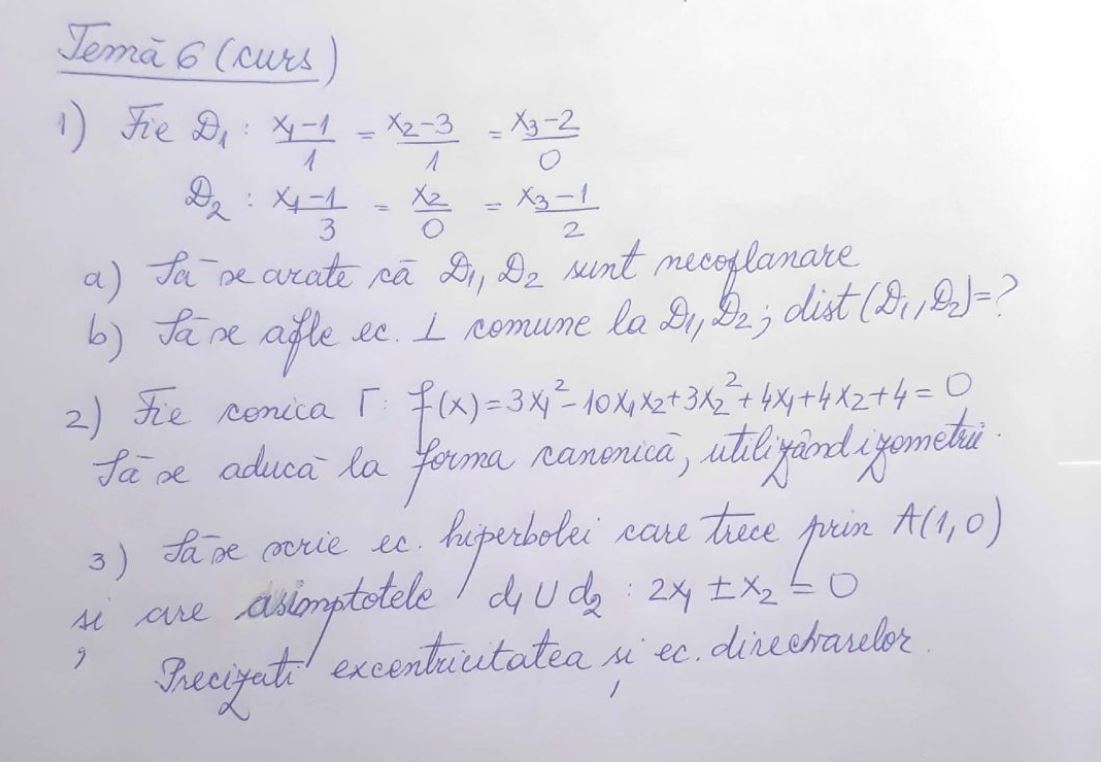 Temă 6 (curs)
1) Fie D₁ : (x₁-1)/1 = (x₂-3)/1 = (x₃-2)/0
D₂ : (x₁-1)/3 = x₂/0 = (x₃-1)/2
a) Să se arate că D₁, D₂ sunt necoplanare
b) Să se afle ec. ⊥ comune la D₁, D₂; dist(D₁, D₂)=?
2) Fie conica Γ: f(x) = 3x₁² - 10x₁x₂ + 3x₂² + 4x₁ + 4x₂ + 4 = 0
Să se aducă la forma canonică, utilizând izometrii.
3) Să se scrie ec. hiperbolei care trece prin A(1,0)
și are asimptotele d₁ ∪ d₂ : 2x₁ ± x₂ = 0
Precizați excentricitatea și ec. directoarelor.